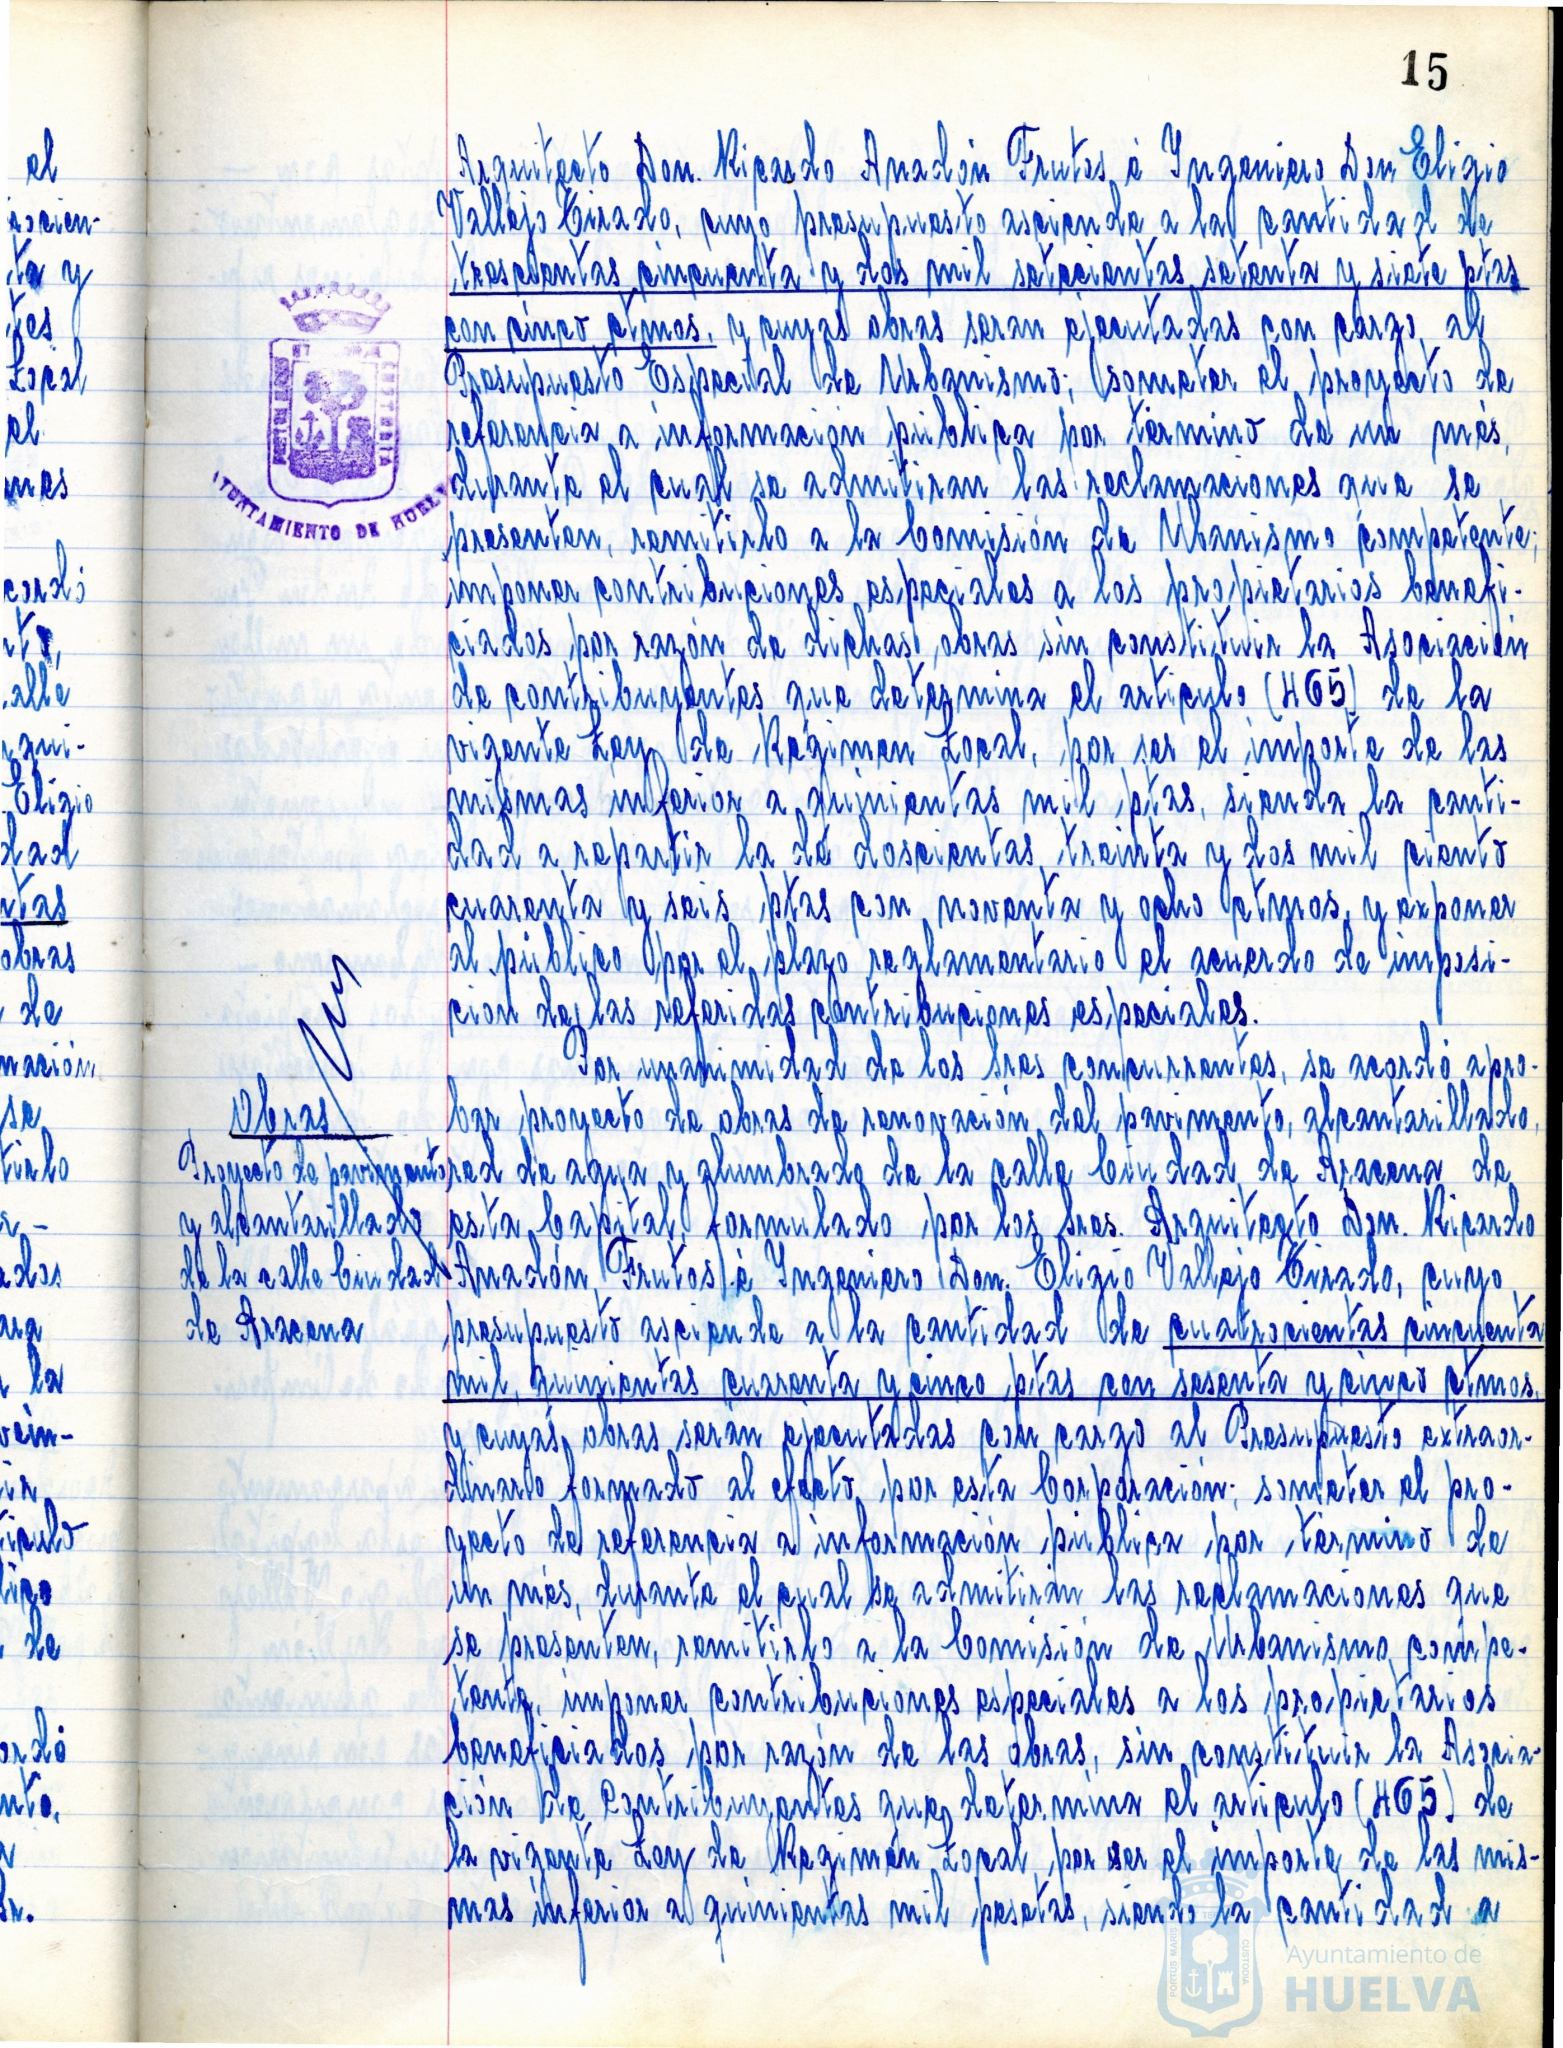 15
el
ta y
tes
Local
el
cordó
alle
qui-
Eligio
dad
ntas
obras
de
mación
se
tirlo
la
vein-
ir
tículo
de
ordó
Arquitecto Don. Ricardo Anadón Frutos é Ingeniero Don Eligio
Vallejo Tirado, cuyo presupuesto asciende a la cantidad de
trescientas cincuenta y dos mil setecientas setenta y siete ptas
con cinco ctmos, y cuyas obras seran ejecutadas con cargo al
Presupuesto Especial de Urbanismo; someter el proyecto de
referencia a información pública por término de un més,
durante el cual se admitiran las reclamaciones que se
presenten, remitirlo a la Comisión de Ubanismo competente;
imponer contribuciones especiales a los propietarios benefi-
ciados por razón de dichas obras sin constituir la Asociación
de contribuyentes que determina el articulo (465) de la
vigente Ley de Régimen Local, por ser el importe de las
mismas inferior a quinientas mil ptas, sienda la canti-
dad a repartir la de doscientas treinta y dos mil ciento
cuarenta y seis ptas con noventa y ocho ctmos, y exponer
al público por el plazo reglamentario el acuerdo de imposi-
cion de las referidas contribuciones especiales.
Por unanimidad de los sres concurrentes, se acordó apro-
Obras
bar proyecto de obras de renovación del pavimento, alcantarillado,
Proyecto de pavimento
red de agua y alumbrado de la calle Ciudad de Aracena de
y alcantarillado
esta Capital, formulado por los sres. Arquitecto Don. Ricardo
de la calle Ciudad
Anadón Frutos é Ingeniero Don. Eligio Vallejo Tirado, cuyo
de Aracena
presupuesto asciende a la cantidad de cuatrocientas cincuenta
mil, quinientas cuarenta y cinco ptas con sesenta y cinco ctmos,
y cuyas obras serán ejecutadas con cargo al Presupuesto extraor-
dinario formado al efecto por esta Corporación; someter el pro-
yecto de referencia a información pública por término de
un més, durante el cual se admitirán las reclamaciones que
se presenten, remitirlo a la Comisión de Urbanismo compe-
tente, imponer contribuciones especiales a los propietarios
beneficiados por razón de las obras, sin constituir la Asocia-
ción de Contribuyentes que determina el articulo (465) de
la vigente Ley de Regimén Local, por ser el importe de las mis-
mas inferior a quinientas mil pesetas, siendo la cantidad a
AYUNTAMIENTO DE HUELVA
PORTUS MARIS
CUSTODIA
Ayuntamiento de
HUELVA